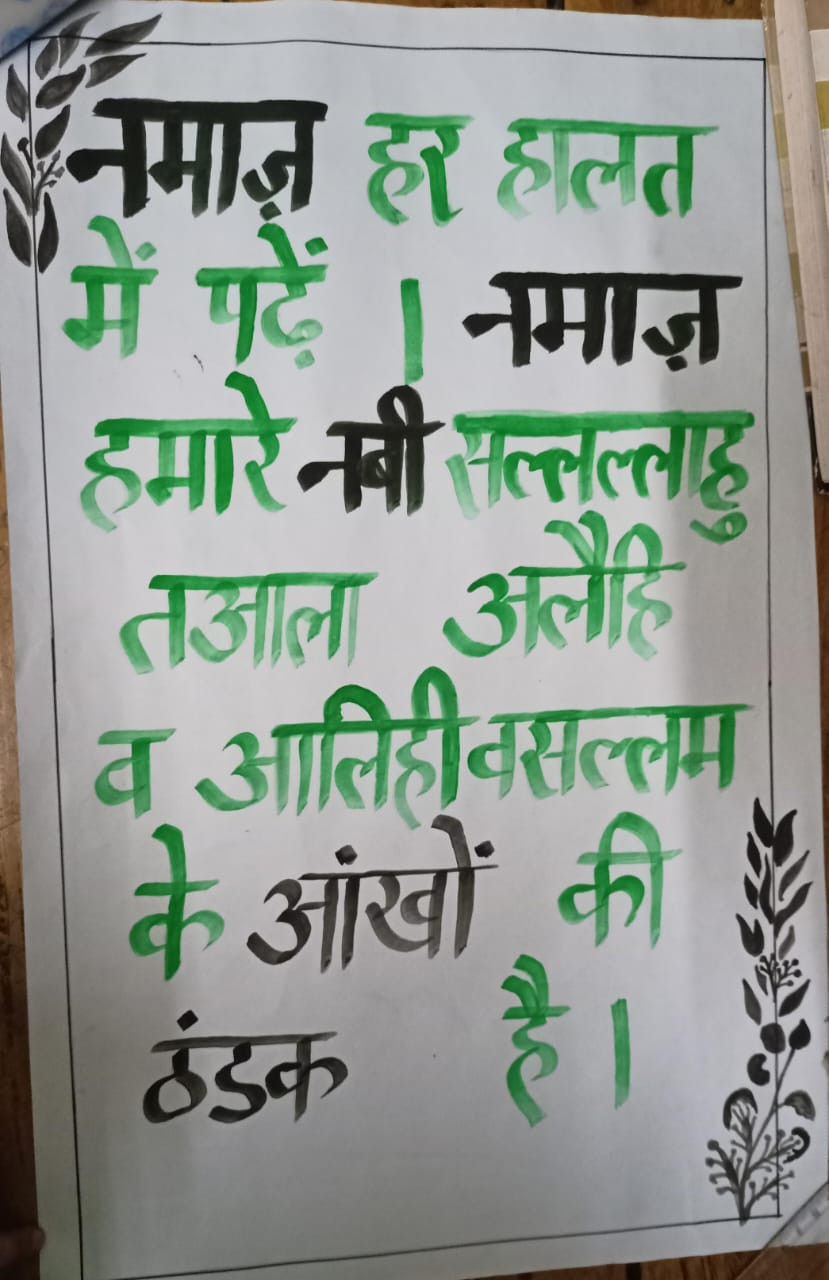 नमाज़ हर हालत
में पढ़ें । नमाज़
हमारे नबी सल्लल्लाहु
तआला अलैहि
व आलिही वसल्लम
के आंखों की
ठंडक है ।